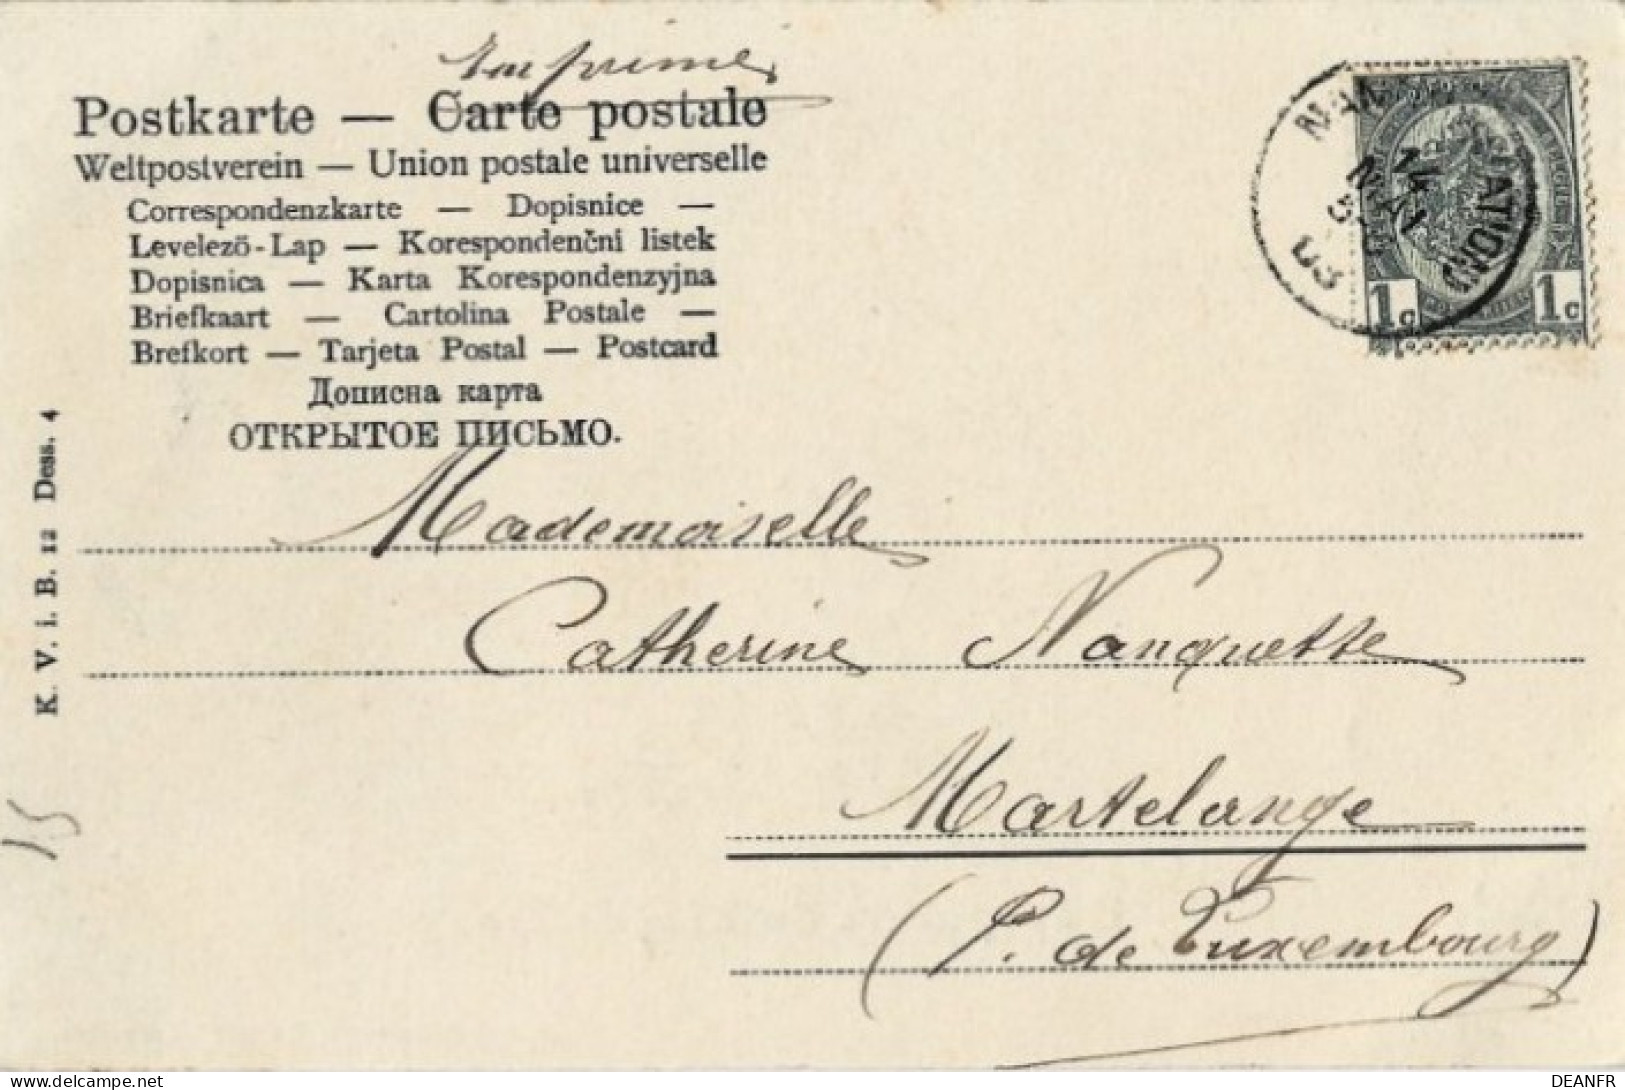 Imprimé
Postkarte — Carte postale
Weltpostverein — Union postale universelle
Correspondenzkarte — Dopisnice —
Levelező-Lap — Korespondenční listek
Dopisnica — Karta Korespondenzyjna
Briefkaart — Cartolina Postale —
Brefkort — Tarjeta Postal — Postcard
Дописна карта
ОТКРЫТОЕ ПИСЬМО.
14
MAI
03
1c 1c
K. V. i. B. 12 Dess. 4
Mademoiselle
Catherine Nanquette
Martelange
(P. de Luxembourg)
15
DEANFR